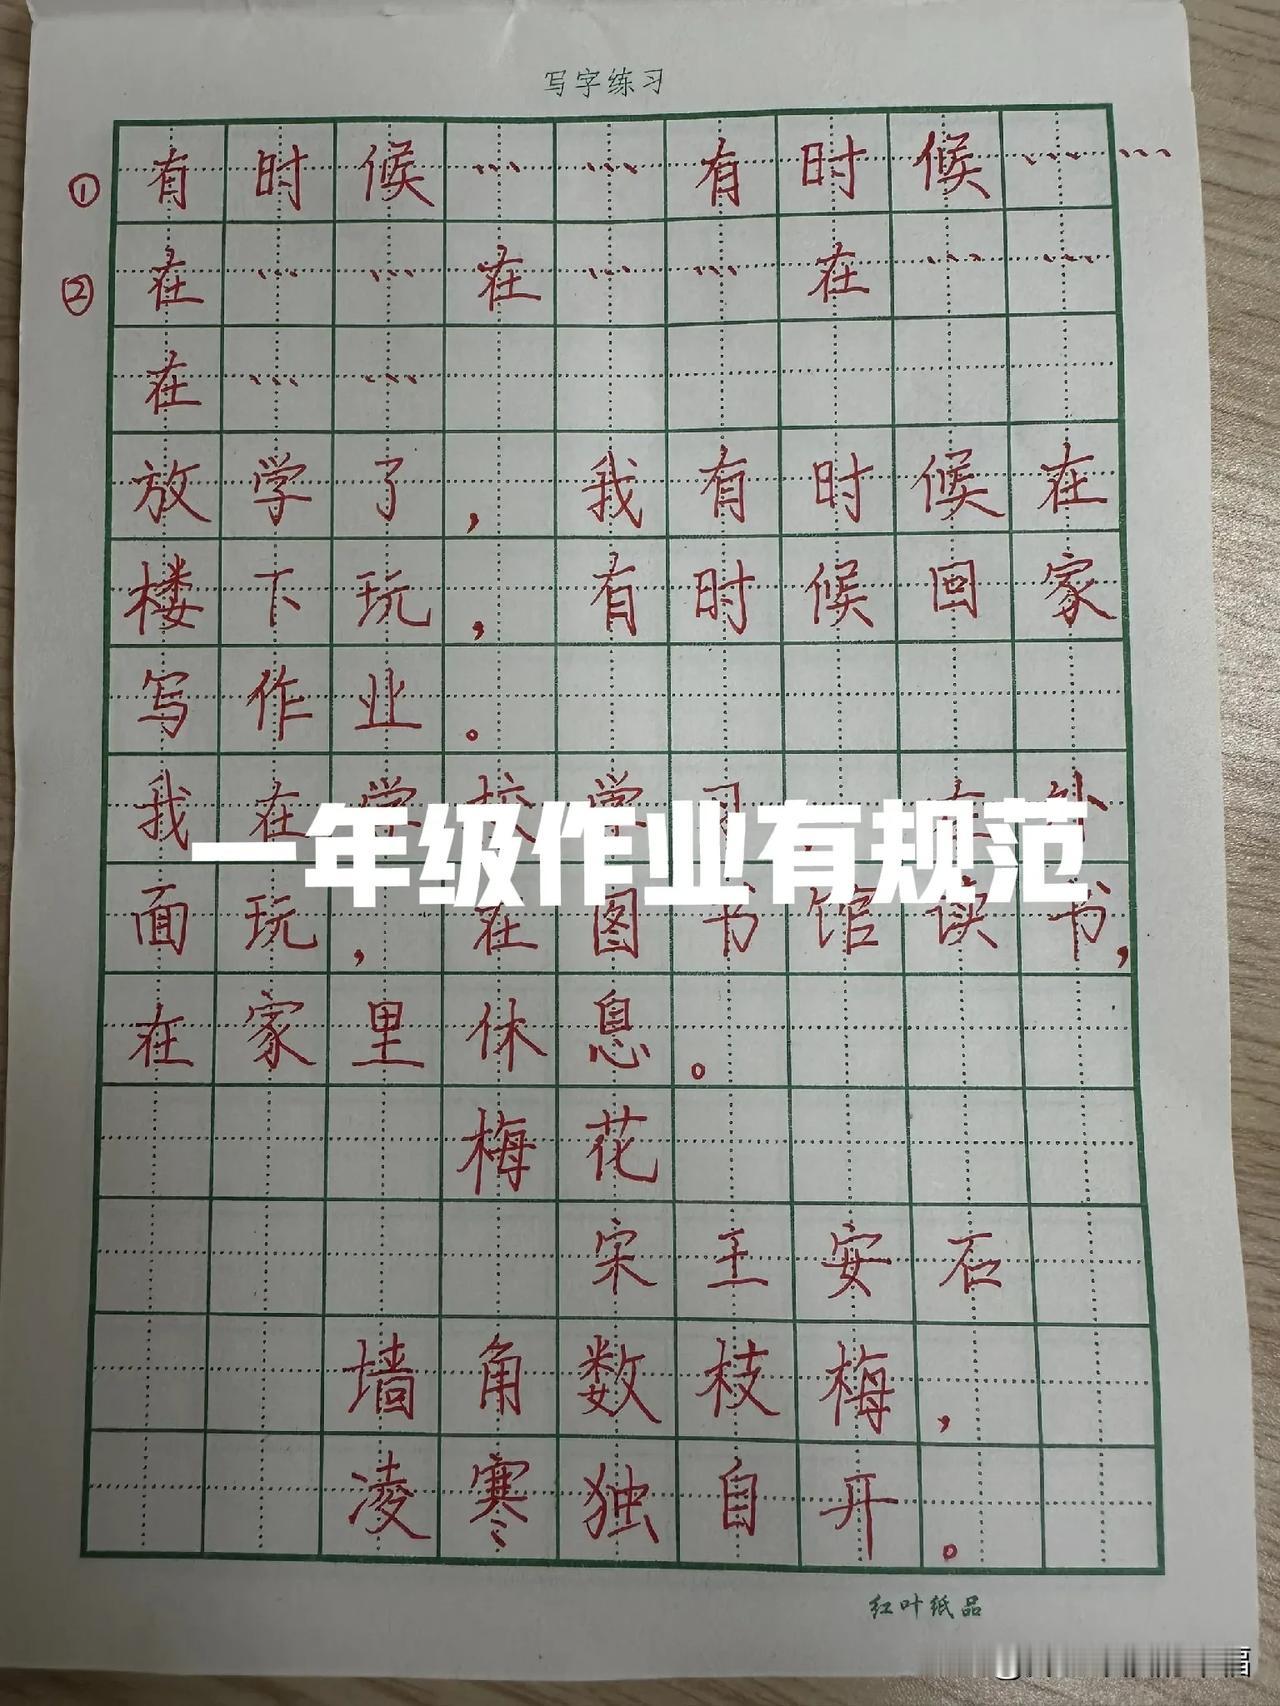 写字练习
① 有时候……有时候……
② 在……在……在……
在……
放学了，我有时候在
楼下玩，有时候回家
写作业。
我在学校学习，在外
一年级作业有规范
面玩，在图书馆读书，
在家里休息。
梅花
宋 王安石
墙角数枝梅，
凌寒独自开。
红叶纸品